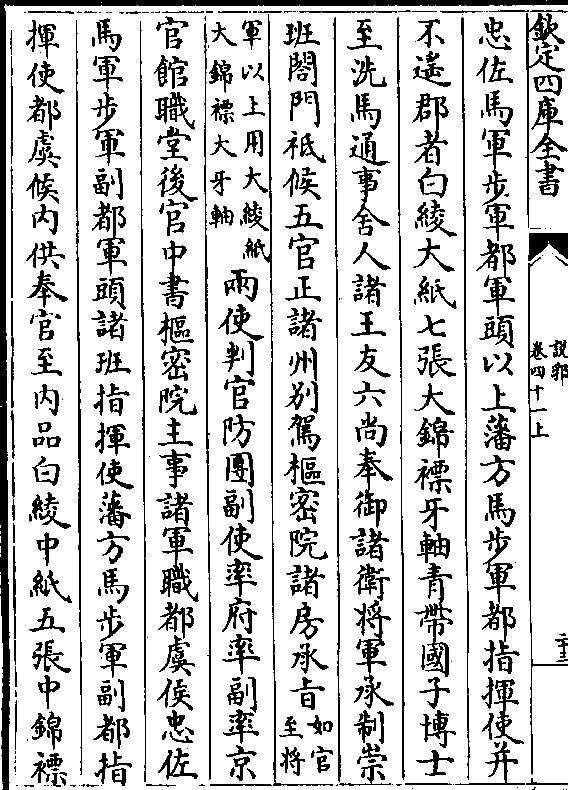 欽定四庫全書
說郛
卷四十一上
二十三
忠佐馬軍步軍都軍頭以上藩方馬步軍都指揮使并
不遙郡者白綾大紙七張大錦褾牙軸青帶國子博士
至洗馬通事舍人諸王友六尚奉御諸衛將軍承制崇
班閤門祗候五官正諸州别駕樞密院諸房承旨如官
至將
軍以上用大綾紙
大錦褾大牙軸
兩使判官防團副使率府率副率京
官館職堂後官中書樞密院主事諸軍職都虞侯忠佐
馬軍步軍副都軍頭諸班指揮使藩方馬步軍副都指
揮使都虞候内供奉官至内品白綾中紙五張中錦褾